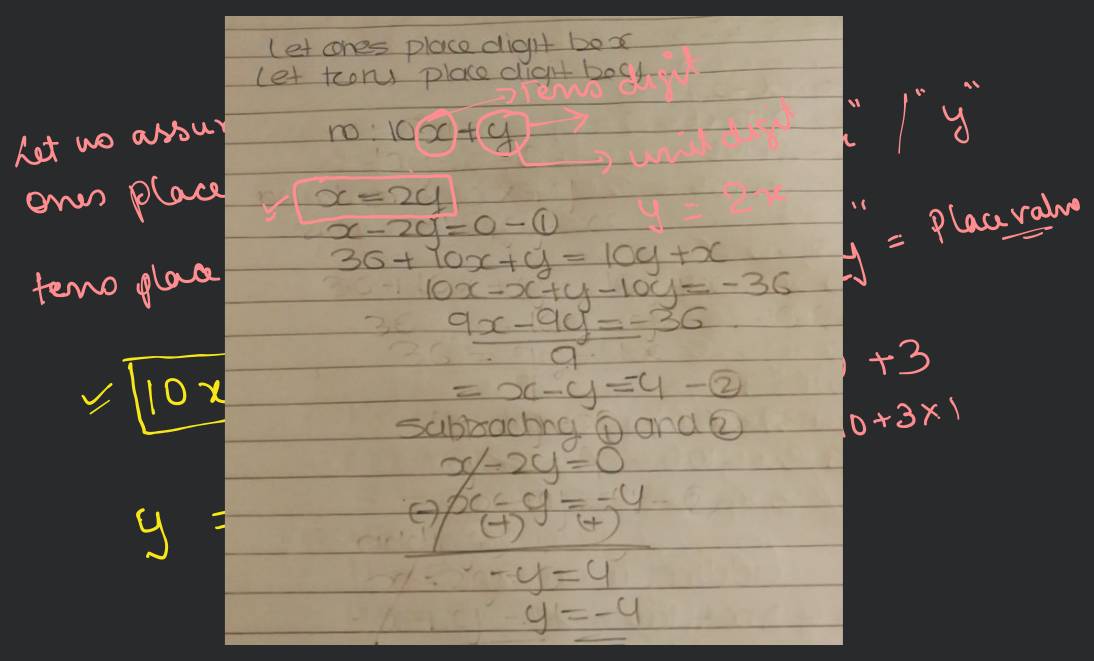 Let ones place digit be x
Let tens place digit be y
Tens digit
no : 10x + y
unit digit
x = 2y
y = 2x
x - 2y = 0 - ①
36 + 10x + y = 10y + x
10x - x + y - 10y = - 36
9x - 9y = - 36
9
= x - y = -4 - ②
Subtracting ① and ②
x - 2y = 0
(-) x - y = - 4
(+) (+)
- y = 4
y = - 4
Let no assu
ones place
tens place
10x
y =
" / " y "
y = Place value
+ 3
0 + 3 × 1